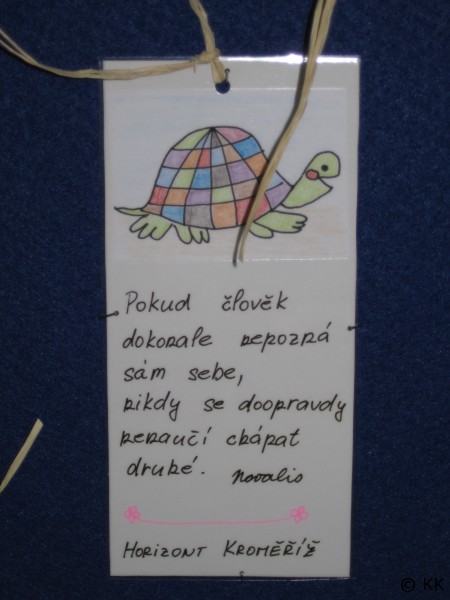 Pokud člověk
dokonale nepozná
sám sebe,
nikdy se doopravdy
nenaučí chápat
druhé. Novalis
HORIZONT KROMĚŘÍŽ
© KK